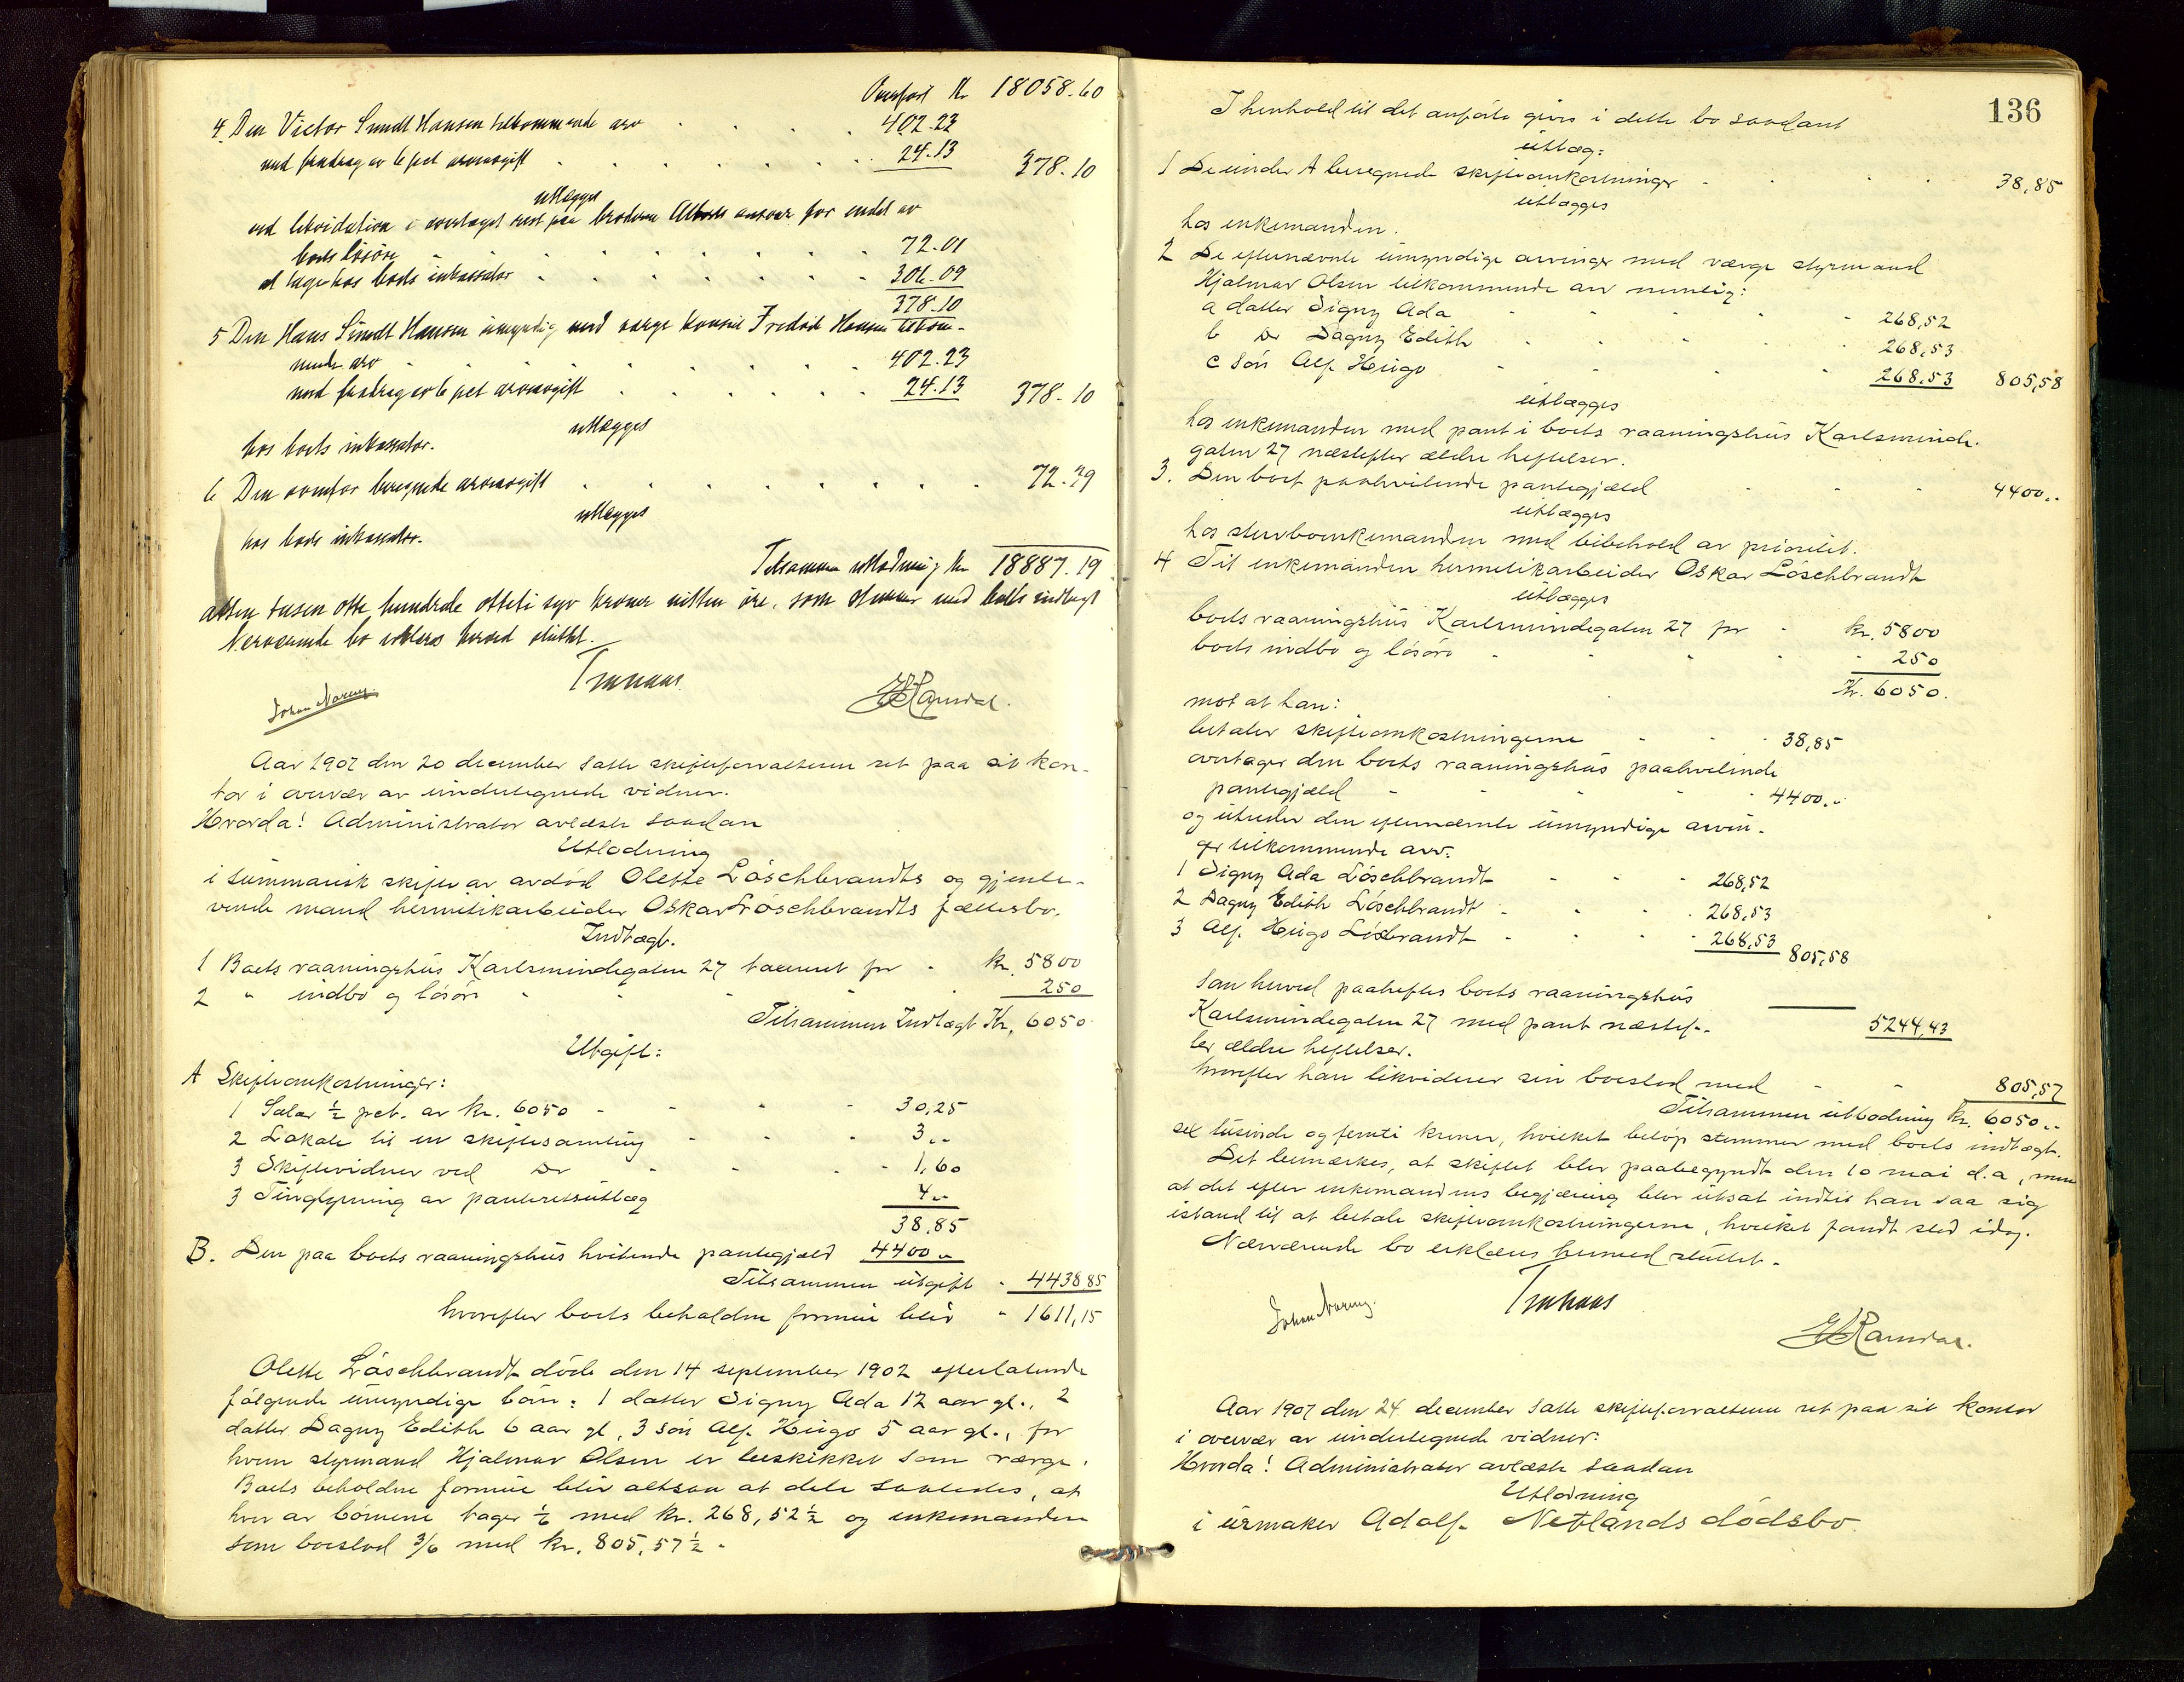 Overført Kr 18058.60
4. Den Victor Sundt Hansen tilkommende arv . . . 402.23
med fradrag av 6 pct arveavgift . . . 24.13 378.10
utlægges
ved likvidation i overtaget rest paa broderen Alberts ansvar for endel av
boets løsøre . . . 72.01
at tage hos boets inkassator . . . 306.09
378.10
5 Den Hans Sundt Hansen umyndig med verge konsul Fredrik Hansen tilkom-
mende arv . . . 402.23
med fradrag av 6 pct arveavgift . . . 24.13 378.10
utlægges
hos boets inkassator.
6 Den ovenfor beregnede arveavgift . . . 72.39
utlægges
hos boets inkassator.
Tilsammen utlodning kr 18887.19
atten tusen otte hundrede otteti syv kroner nitten øre, som stemmer med boets indtægt
Nerværende bo erklæres herved sluttet.
Johan Norem

Aar 1907 den 20 december satte skifteforvalteren ret paa sit kon-
tor i overvær av undertegnede vidner.
Hvorda! Administrator avlæste saadan
Utlodning
i summarisk skifte av avdød Olette Löschbrandts og gjenle-
vende mand hermetikarbeider Oskar Löschbrandts fællesbo.
Indtægt.
1 Boets vaaningshus Karlsmindegaten 27 taxeret for - kr. 5800
2 " indbo og løsøre - - - 250
Tilsammen Indtægt Kr. 6050
Utgift:
A Skifteomkostninger:
1 Salær ½ pct. av kr. 6050 - - - 30,25
2 Lokale til en skiftesamling - - - 3 ..
3 Skiftevidner ved Do - - - 1,60
3 Tinglysning av panteretsutlæg 4 ..
38.85
B. Den paa boets vaaningshus hvilende pantegjæld 4400 ..
Tilsammen utgift - 4438 85
hvorefter boets beholdne formue blir " 1611,15
Olette Löschbrandt døde den 14 september 1902 efterlatende
følgende umyndige børn: 1 datter Signy Ada 12 aar gl., 2
datter Dagny Edith 6 aar gl, 3 søn Alf Hugo 5 aar gl., for
hvem styrmand Hjalmar Olsen er beskikket som værge.
Boets beholdne formue blir altsaa at dele saaledes, at
hver av børnene tager 1/6 med kr. 268,52½ og enkemanden
som boeslod 3/6 med kr. 805,57½ -
136
I henhold til det anførte gives i dette bo saadant
utlæg:
1 De under A beregnede skifteomkostninger - - - 38,85
utlægges
hos enkemanden.
2 De efternævnte umyndige arvinger med værge styrmand
Hjalmar Olsen tilkommende arv nemlig:
a datter Signy Ada - - - 268,52
b Do Dagny Edith - - - 268,53
c søn Alf Hugo - - - 268,53 805,58
utlægges
hos enkemanden med pant i boets vaaningshus Karlsminde-
gaten 27 næstefter ældre heftelser.
3. Den boet paahvilende pantegjæld - - - 4400 ..
utlægges
hos stervboenkemanden med bibehold av prioritet.
4 Til enkemanden hermetikarbeider Oskar Löschbrandt
utlægges
boets vaaningshus Karlsmindegaten 27 for - kr. 5800
boets indbo og løsøre - - - 250
Kr. 6050.
mot at han:
betaler skifteomkostningerne - - - 38,85
overtager den boets vaaningshus paahvilende
pantegjæld - - - 4400 ..
og utreder den efternævnte umyndige arvin-
ger tilkommende arv:
1 Signy Ada Löschbrandt - - - 268,52
2 Dagny Edith Löschbrandt - - - 268,53
3 Alf Hugo Löscbrandt - - - 268,53 805,58
som herved paaheftes boets vaaningshus
Karlsmindegaten 27 med pant næstef-
ter ældre heftelser. 5244,43
hvorefter han likviderer sin boeslod med - - 805,57
Tilsammen utlodning kr. 6050 ..
sex tusinde og femti kroner, hvilket beløp stemmer med boets indtægt.
Det bemærkes, at skiftet blev paabegyndt den 10 mai d.a, men
at det efter enkemandens begjæring blev utsat indtil han saa sig
istand til at betale skifteomkostningerne, hvilket fandt sted idag.
Nærværende bo erklæres hermed sluttet -
Johan Norem

Aar 1907 den 24 december satte skifteforvalteren ret paa sit kontor
i overvær av undertegnede vidner:
Hvorda! Administrator avlæste saadan
Utlodning
i urmaker Adolf Netlands dødsbo